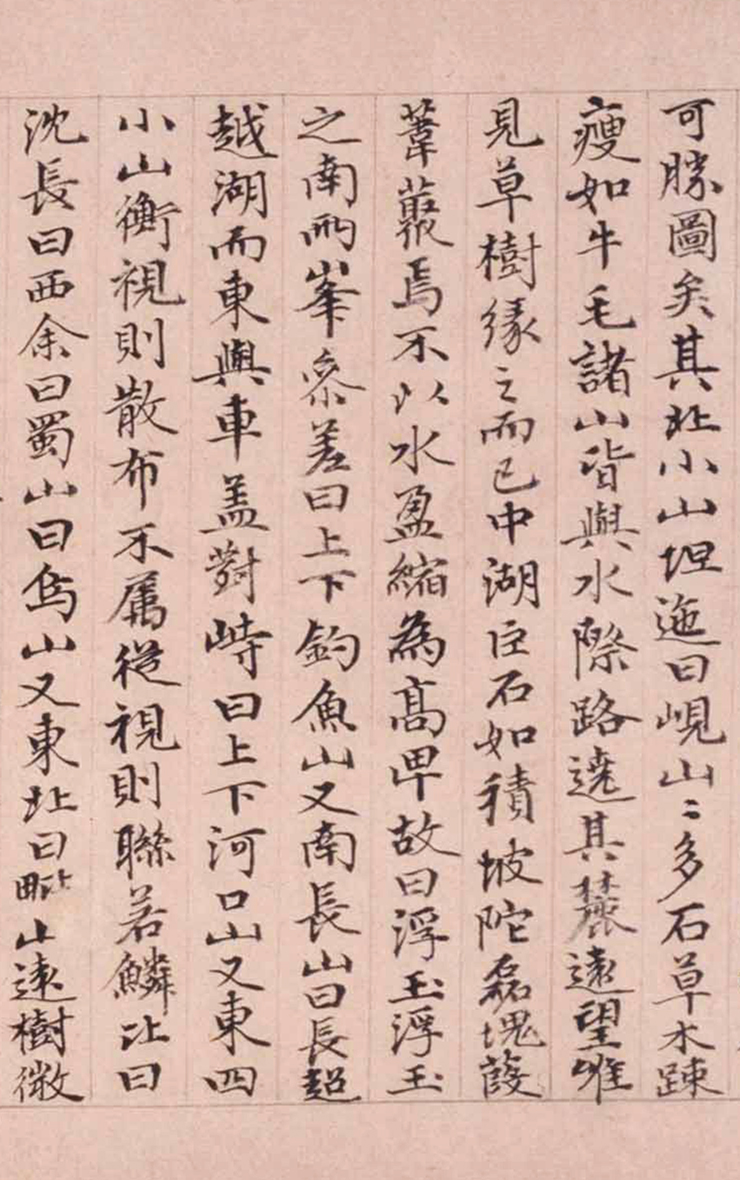 可勝圖矣其北小山坦迤曰峴山〻多石草木疎
瘦如牛毛諸山皆與水際路遶其麓遠望唯
見草樹緣之而已中湖巨石如積坡陀磊塊葭
葦藂焉不以水盈縮為高卑故曰浮玉浮玉
之南兩峯叅差曰上下釣魚山又南長山曰長超
越湖而東與車盖對峙曰上下河口山又東四
小山衡視則散布不属從視則聯若鱗比曰
沈長曰西余曰蜀山曰烏山又東北曰毗山遠樹微